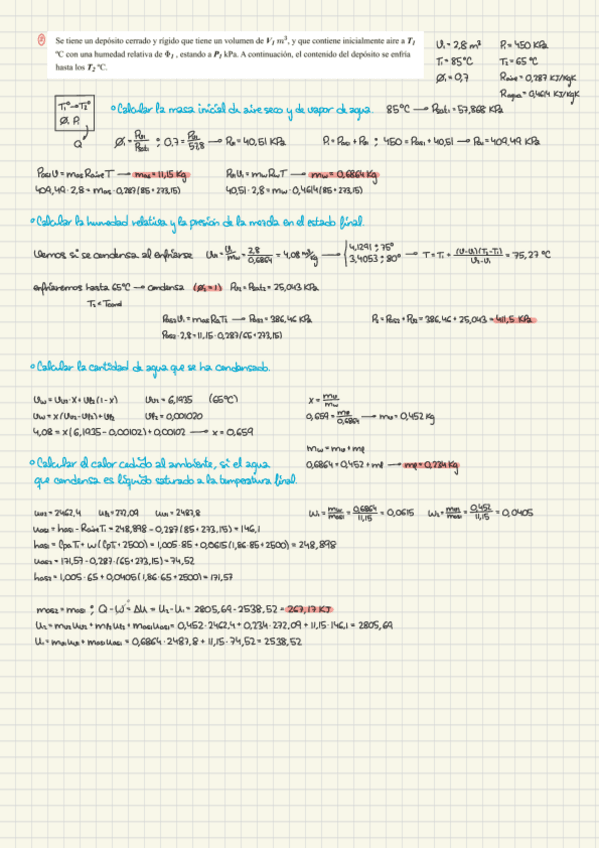 ② Se tiene un depósito cerrado y rígido que tiene un volumen de V₁ m³, y que contiene inicialmente aire a T₁
ºC con una humedad relativa de Φ₁ , estando a P₁ kPa. A continuación, el contenido del depósito se enfría
hasta los T₂ ºC.
V₁ = 2,8 m³ P₁ = 450 KPa
T₁ = 85°C T₂ = 65°C
Ø₁ = 0,7 Raire = 0,287 KJ/KgK
Ragua = 0,4614 KJ/KgK
T₁° → T₂°
Ø₁ P₁
Q
° Calcular la masa inicial de aire seco y de vapor de agua. 85°C → Psat₁ = 57,868 KPa
→ Pv₁ = 40,51 KPa 450 = Pas₁ + 40,51 → Pas = 409,49 KPa
Pas₁V = mas Raire T → mas = 11,15 Kg Pv₁V₁ = mw RwT → mw = 0,6864 Kg
409,49 · 2,8 = mas · 0,287 (85 + 273,15) 40,51 · 2,8 = mw · 0,4614 (85 + 273,15)
° Calcular la humedad relativa y la presión de la mezcla en el estado final.
Vemos si se condensa al enfriarse = 2,8 / 0,6864 = 4,08 m³/kg → 4,1291 ; 75° 3,4053 ; 80° → = 75,27°C
enfriaremos hasta 65°C → condensa (Ø₂ = 1) Pv₂ = Psat₂ = 25,043 KPa
T₂ < Tcond
Pas₂V₁ = mas RaT₂ → Pas₂ = 386,46 KPa P₂ = Pas₂ + Pv₂ = 386,46 + 25,043 = 411,5 KPa
Pas₂ · 2,8 = 11,15 · 0,287 (65 + 273,15)
° Calcular la cantidad de agua que se ha condensado.
= 6,1935 (65°C)
= 0,001020 → mv = 0,452 Kg
4,08 = x (6,1935 - 0,00102) + 0,00102 → x = 0,659
° Calcular el calor cedido al ambiente, si el agua
que condensa es líquido saturado a la temperatura final.
0,6864 = 0,452 + → = 0,234 Kg
= 2462,4 = 272,09 = 2487,8
= 0,6864 / 11,15 = 0,0615 = 0,452 / 11,15 = 0,0405
= 248,898 - 0,287 (85 + 273,15) = 146,1
= 1,005 · 85 + 0,0615 (1,86 · 85 + 2500) = 248,898
= 171,57 - 0,287 · (65 + 273,15) = 74,52
= 1,005 · 65 + 0,0405 (1,86 · 65 + 2500) = 171,57
= 2805,69 - 2538,52 = 267,17 KJ
= 0,452 · 2462,4 + 0,234 · 272,09 + 11,15 · 146,1 = 2805,69
= 0,6864 · 2487,8 + 11,15 · 74,52 = 2538,52